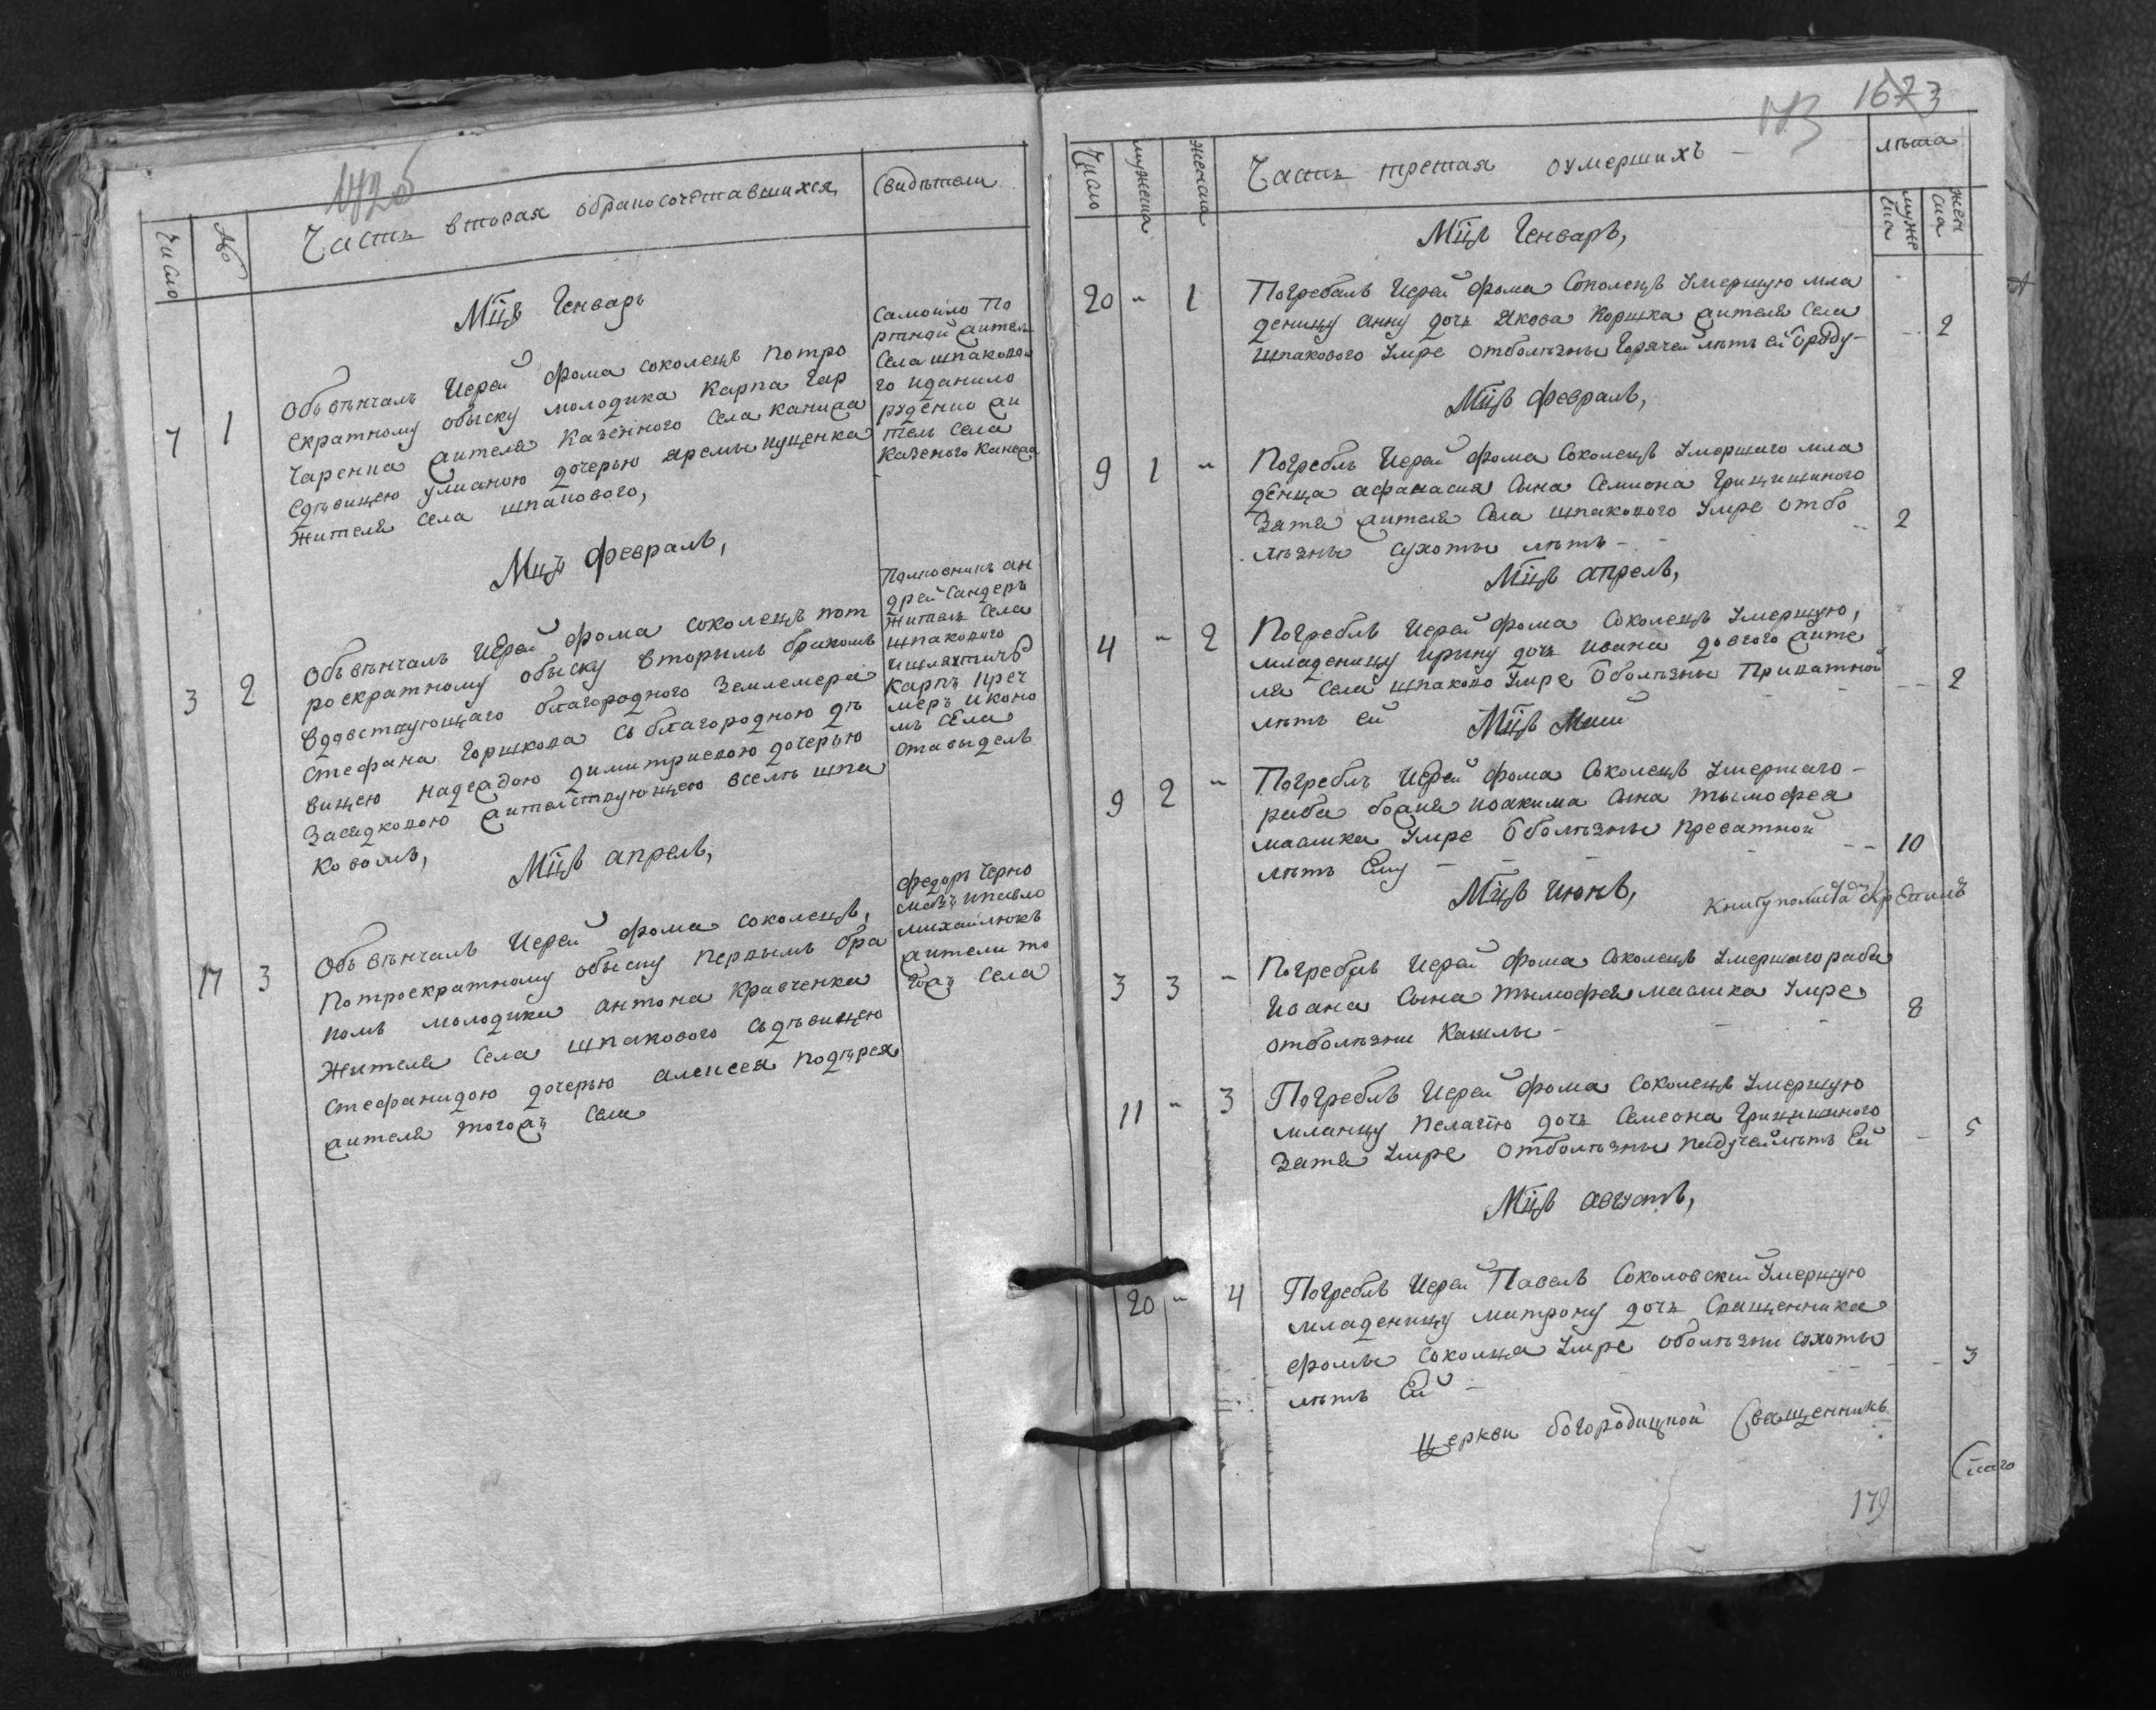 172об
Число
№
Часть вторая обракосочетавшихся
Свидѣтели
Мцъ Генварь
7 1
Объвѣнчалъ Иерей фома соколецъ потро
екратному обыску молодика Карпа Гар
жителя Казенного Села
сдѣвицею улианою дочерью яремы куценка
жителя Села шпакового,
Самойло По
жител
Села шпаково
го иданило
руденко жи
тель Села
Казеного
Мцъ февраль,
3 2
Объвѣнчалъ Иерей фома соколецъ пот
роекратному обыску вторымъ бракомъ
вдовствующаго благородного Землемера
стефана Горшкова съ благородною дѣ
вицею надеждою димитриевою дочерью
жителствующею вселѣ шпа
ковомъ,
Полковникъ ан
дрей Сандеръ
житель Села
шпакового
ишляхтичъ
Карпъ
икono
мъ Села
Мцъ апрель,
17 3
Объвѣнчалъ Иерей фома соколецъ,
Потроекратному обыску первымъ бра
комъ молодика антона Кравченка
жителя Села шпакового сдѣвицею
стефанидою дочерью алексея
жителя тогожъ Села
федоръ Черно
ипавло
михайлюкъ
жители то
гожъ Села
173 1673
Число
мужеска
женска
Часть третая оумершихъ
лѣта
муже
ска
жен
ска
Мцъ Генварь,
20 - 1
Погребалъ Иерей фома Соколецъ Умершую мла
деницу анну дочь Якова Коржка жителя Села
шпакового Умре отболѣзны Горячей лѣтъ ей
2
Мцъ февраль,
9 1 -
Погреблъ Иерей фома Соколецъ Умершаго мла
денца афанасия Сына Семиона Грицишиного
Затя жителя Села шпакового Умре отбо
лѣзны сухоты лѣтъ -
2
Мцъ апрель,
4 - 2
Погреблъ Иерей фома Соколецъ Умершую,
младеницу ирину дочь ивана довгого жите
ля Села шпаково Умре Оболѣзны Приватной
лѣтъ ей
2
Мцъ Маий
9 2 -
Погреблъ Иерей фома Соколецъ Умершаго -
раба божия иоакима Сына тымофея
маслика Умре Оболѣзны приватной
лѣтъ Ему -
10
Мцъ июнь,
3 3 -
Погреблъ Иерей фома Соколецъ Умершаго раба
Иоана Сына тымофея маслика Умре
отболѣзни Кашлы -
8
11 - 3
Погреблъ Иерей фома Соколецъ Умершую
мланцу пелагію дочь Семеона Грицишиного
Затя Умре отболѣзны падучей лѣтъ Ей
5
Мцъ августъ,
20 - 4
Погреблъ Иерей Павелъ Соколовский Умершую
младеницу матрону дочь Священника
фомы соколца Умре оболѣзни сухоты
лѣтъ Ей -
3
Церкви богородицкой Священникъ
179